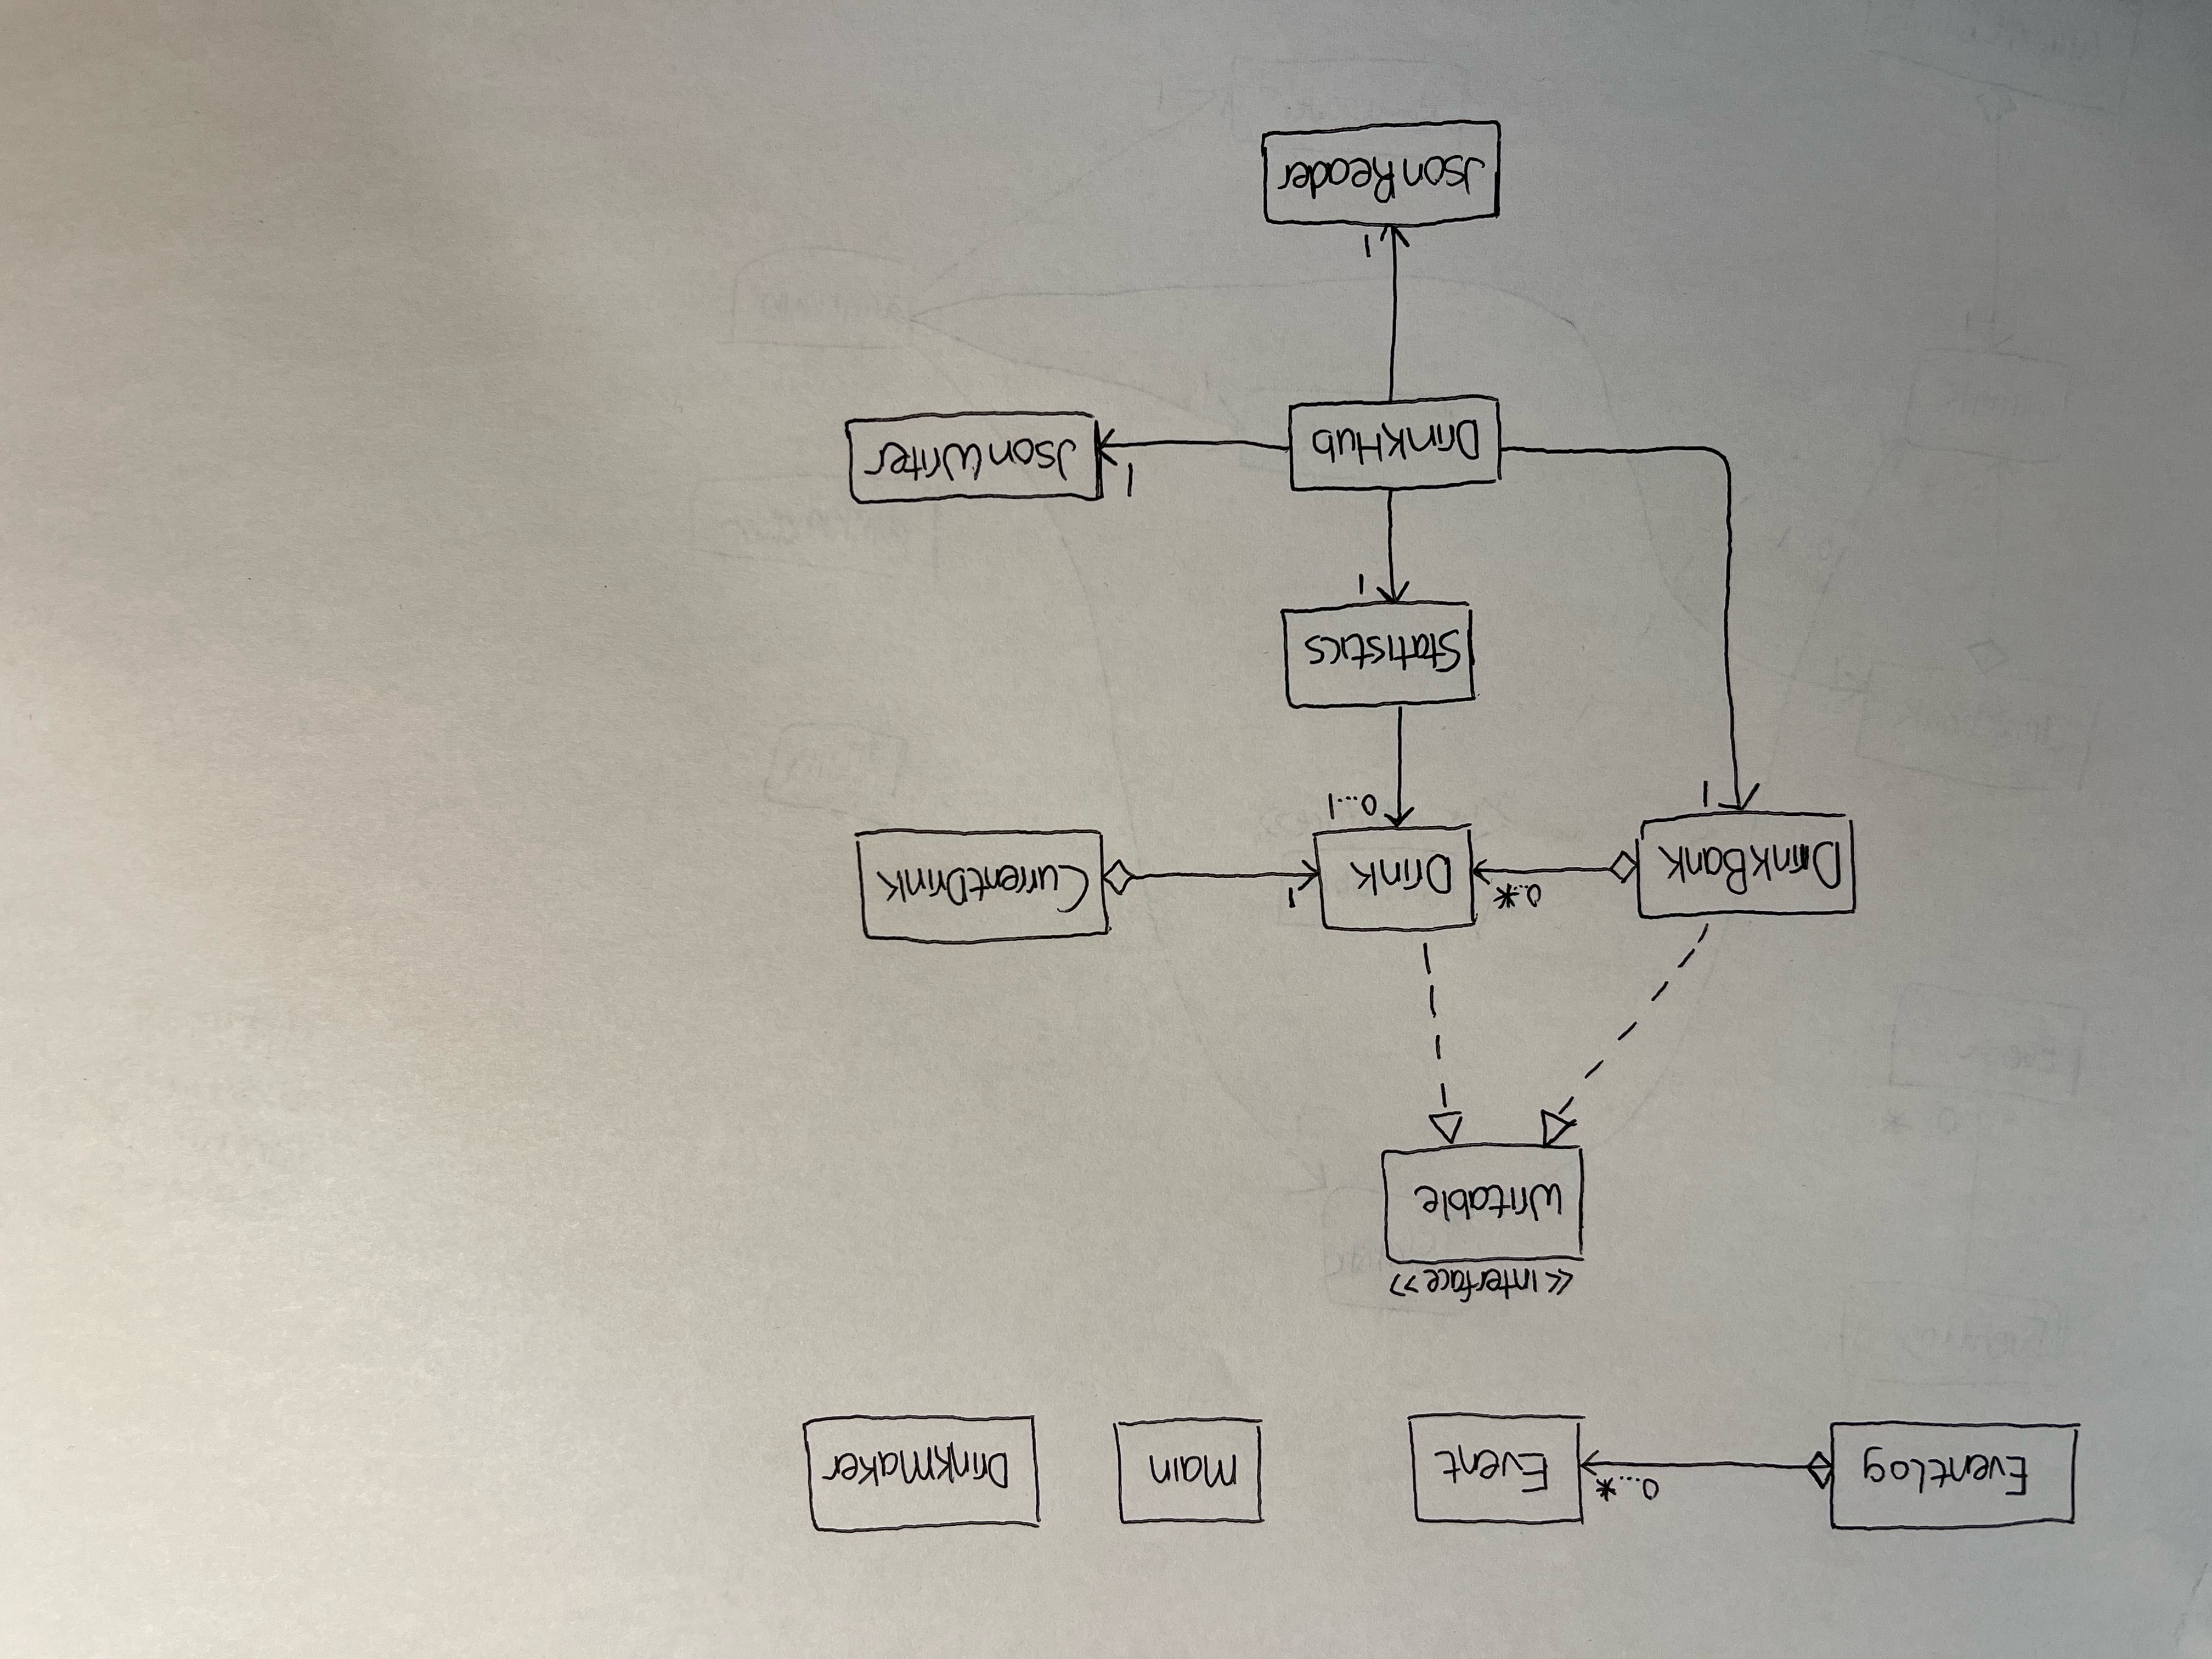 EventLog
0...*
Event
Main
DrinkMaker
<< interface >>
Writable
DrinkBank
0..*
Drink
1
CurrentDrink
1
0...1
Statistics
1
DrinkHub
1
JsonWriter
1
JsonReader